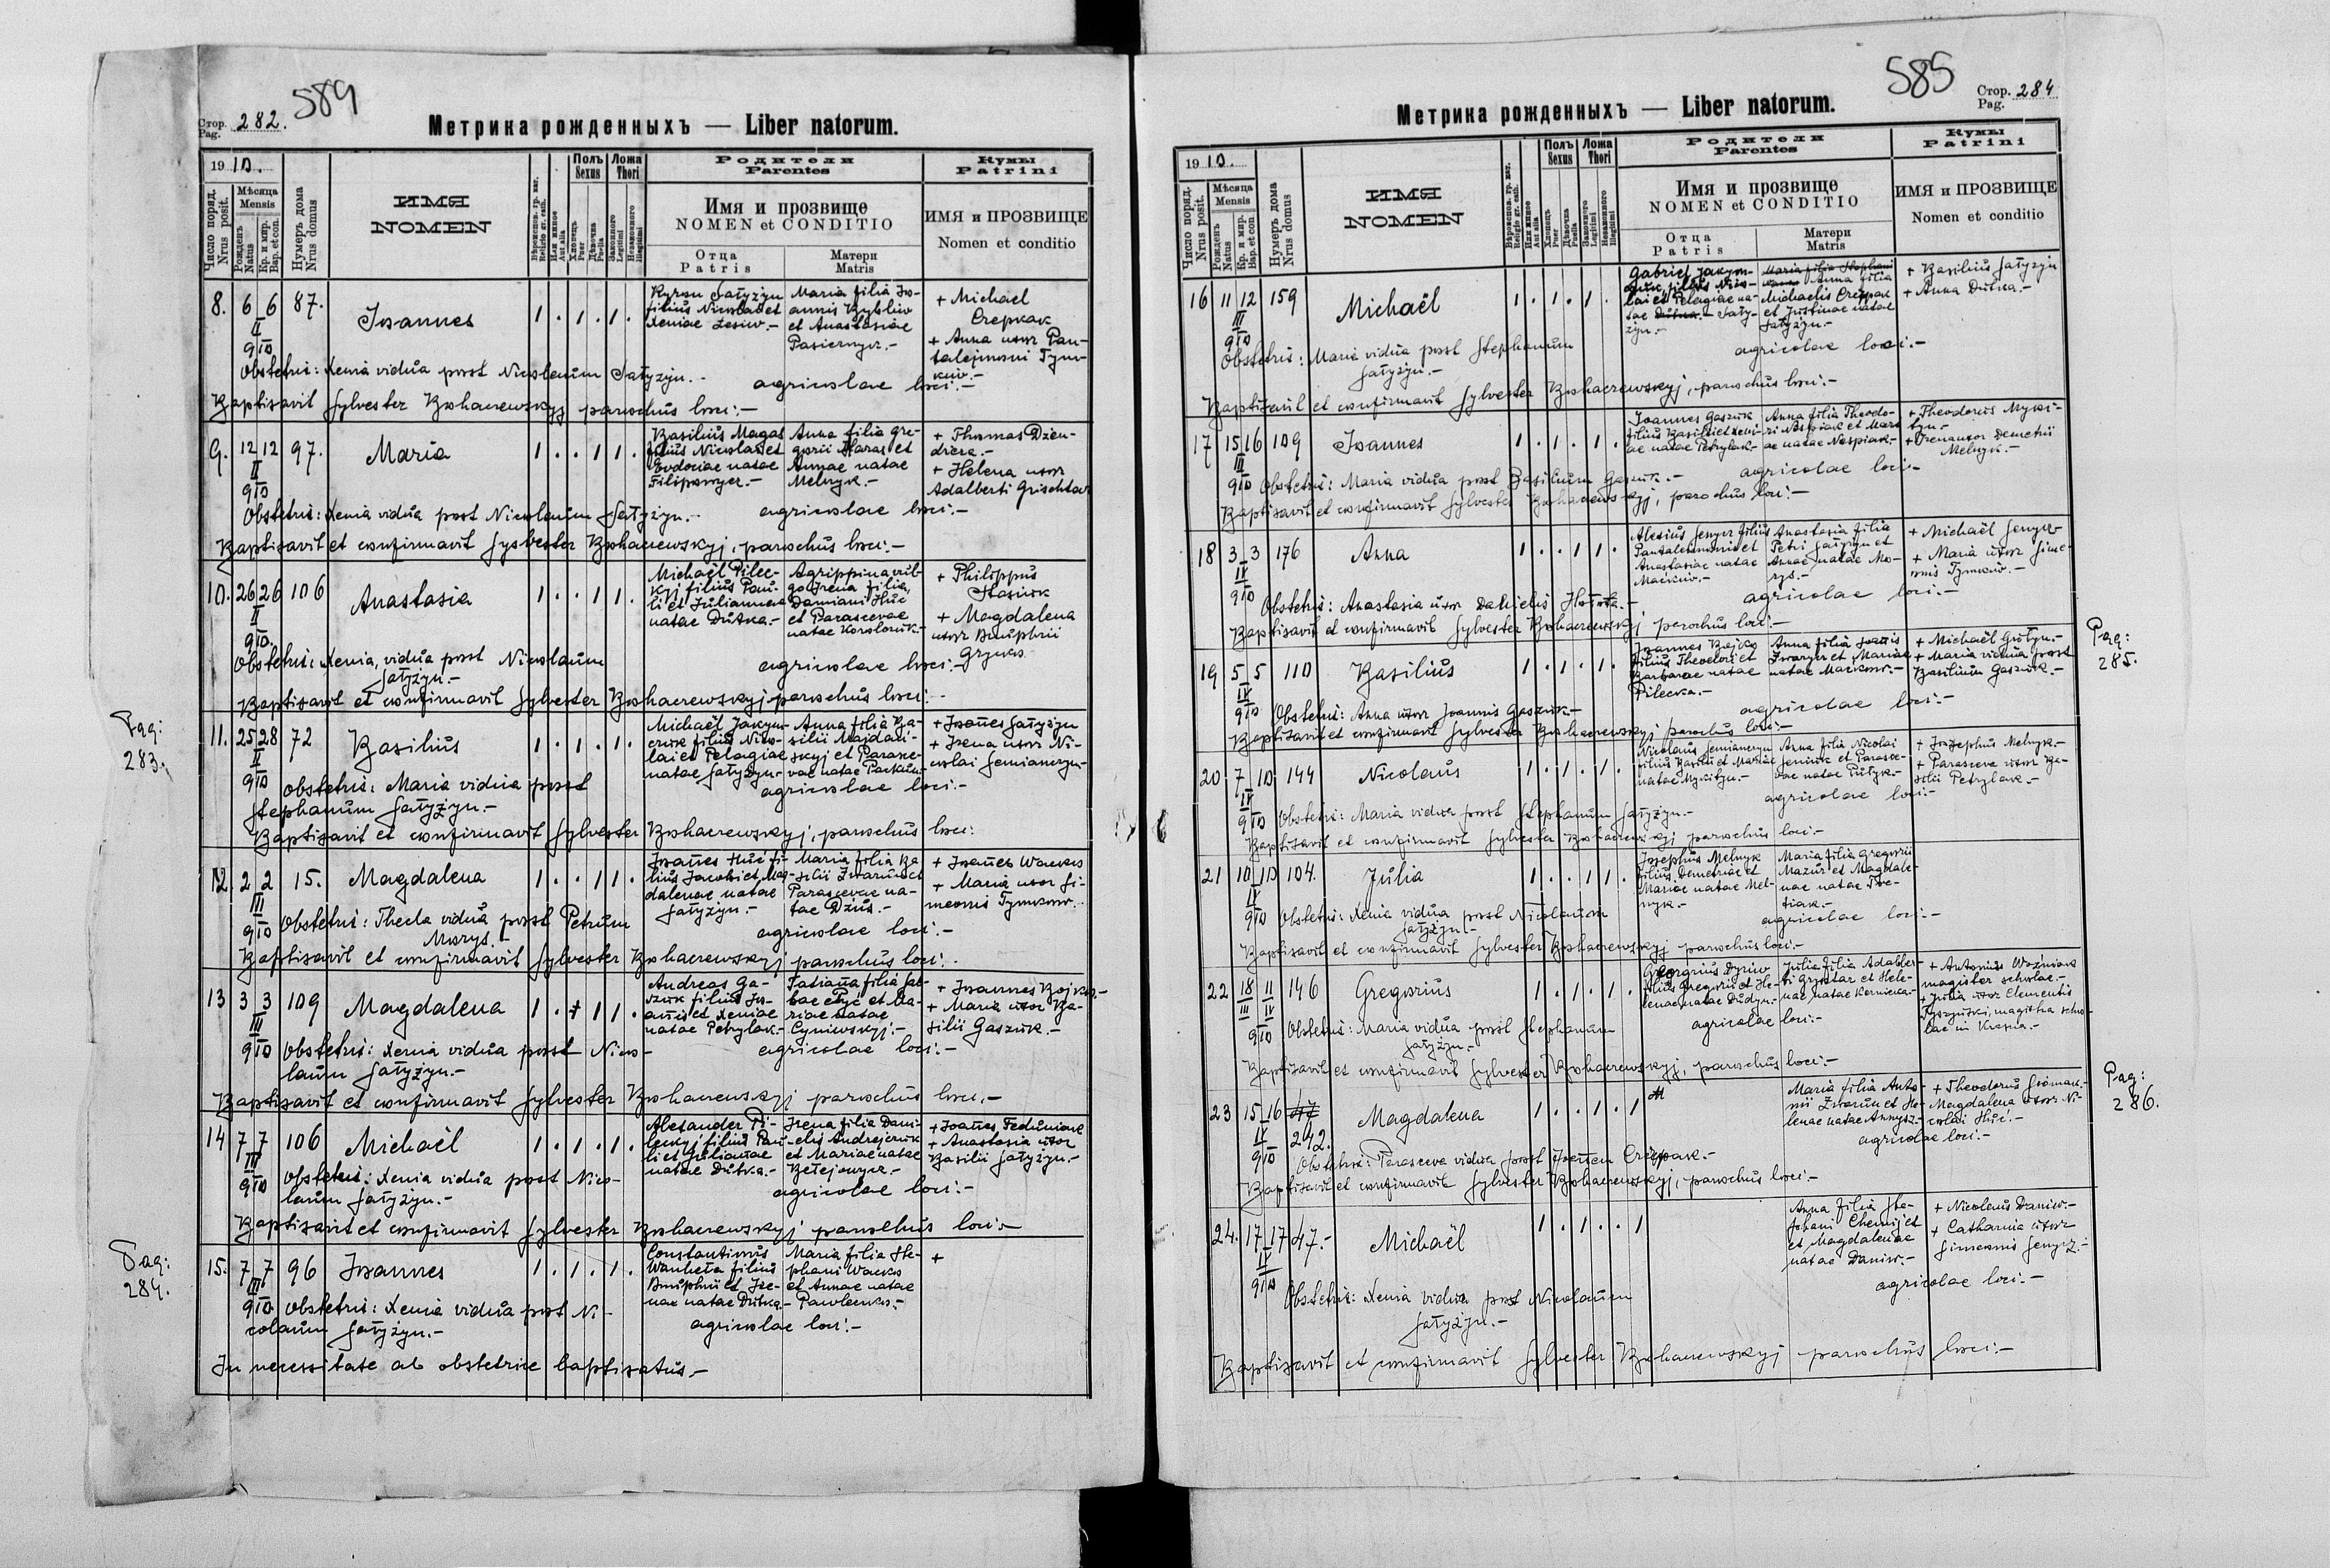 589
Стор. Pag. 282.
Метрика рожденныхъ — Liber natorum.
1910.
Число поряд. Nrus posit.
Мѣсяца Mensis
Рожденъ Natus
Кр. и мир. Bap. et con.
Нумеръ дома Nrus domus
ИМЯ
NOMEN
Полъ Sexus
Хлопецъ Puer
Дѣвочка Puella
Ложа Thori
Законного Legitimi
Незаконного Illegitimi
Родители
Parentes
Имя и прозвище
NOMEN et CONDITIO
Отца Patris
Матери Matris
Кумы
Patrini
ИМЯ и ПРОЗВИЩЕ
Nomen et conditio
8. 6 6 II 910 87. Joannes 1 . 1 . 1 .
Maria filia Jo-
annis
et Anastasiae
Pasiernyr.-
+ Michael
Crepkak
+ Anna uxor Pan-
talejmoni Tym-
kiw.-
Obstetrix: Xenia vidua post Nicolaum Satyzyn.-
agricolae loci.-
Baptisavit Sylvester Bohaczewskyj parochus loci:-
9. 12 12 II 910 97. Maria 1 . . 1 1 .
Basilius Magas
filius Nicolai et
Evdociae natae
Anna filia Gre-
gorii Haras et
Annae natae
Melnyk.-
+ Thomas Dzen-
dzera.-
+ Helena uxor
Adalberti Grischtar
Obstetrix: Xenia vidua post Nicolaum Satyzyn.-
agricolae loci.-
Baptisavit et confirmavit Sylvester Bohaczewskyj, parochus loci:-
10. 26 26 II 910 106 Anastasia 1 . . 1 1 .
Michaël Pilec-
kyj filius Pau-
li et Julianna
natae Dutka.-
Agrippina vul-
go Irena filia
Damiani Huć
et Parascevae
natae Korolczuk.-
+ Philippus
Stasiuk
+ Magdalena
uxor Onuphrii
Obstetrix: Xenia, vidua post Nicolaum
Satyzyn.-
agricolae loci:-
Baptisavit et confirmavit Sylvester Bohaczewskyj parochus loci:-
Pag:
283.
11. 25 28 II 910 72 Basilius 1 . 1 . 1 .
Michaël Jakym-
czuk filius Nico-
lai et Pelagiae
natae Satyzyn.-
Anna filia Ba-
silii Majdan-
skyj et Parasce-
vae natae
+ Joanes Satyzyn
+ Irena uxor Ni-
colai Semianczyn.-
obstetrix: Maria vidua post
Stephanum Satyzyn.-
agricolae loci.-
Baptisavit et confirmavit Sylvester Bohaczewskyj, parochus loci:
12. 2 2 III 910 15. Magdalena 1 . . 1 1 .
Joanes Huć fi-
lius Jacobi et Mag-
dalenae natae
Satyzyn.-
Maria filia Ba
silii Zwarun et
Parascevae na-
tae Dzus.-
+ Joanes Wacko
+ Maria uxor Si-
meonis Tymkow.
Obstetrix: Thecla vidua post Petrum
Moryś.-
agricolae loci:-
Baptisavit et confirmavit Sylvester Bohaczewskyj parochus loci:-
13 3 3 III 910 109 Magdalena 1 . + 1 1 .
Andreas Ga-
szuk filius Jo-
annis et Xeniae
natae Petrylak.-
Tatiana filia
et Ma-
riae natae
Cyniwskyj.-
+ Joannes Bojko.-
+ Maria uxor Ba-
silii Gaszuk.-
Obstetrix: Xenia vidua post Nico-
laum Satyzyn.-
agricolae loci:-
Baptisavit et confirmavit Sylvester Bohaczewskyj parochus loci.-
14 7 7 III 910 106 Michaël 1 . 1 . 1 .
Alexander Pi-
leckyj filius Pau-
li et Juliannae
natae Dutka.-
Irena filia Dani-
elis Andrejczuk
et Mariae natae
+ Joanes Fedunianc
+ Anastasia uxor
Basilii Satyzyn.-
Obstetrix: Xenia vidua post Nico-
laum Satyzyn.-
agricolae loci:-
Baptisavit et confirmavit Sylvester Bohaczewskyj parochus loci:-
Pag:
284.
15. 7 7 III 910 96 Joannes 1 . 1 . 1 .
Constantinus
filius
Onuphrii et Ire-
nae natae Dutka.-
Maria filia Ste-
phani Wacko
et Annae natae
Pawlenko.-
+
Obstetrix: Xenia vidua post Ni-
colaum Satyzyn.-
agricolae loci:-
In necessitate ab obstetrice baptisatus.-
585
Стор. Pag. 284
Метрика рожденныхъ — Liber natorum.
1910.
Число поряд. Nrus posit.
Мѣсяца Mensis
Рожденъ Natus
Кр. и мир. Bap. et con
Нумеръ дома Nrus domus
ИМЯ
NOMEN
Полъ Sexus
Хлопецъ Puer
Дѣвочка Puella
Ложа Thori
Законного Legitimi
Незаконного Illegitimi
Родители
Parentes
Имя и прозвище
NOMEN et CONDITIO
Отца Patris
Матери Matris
Кумы
Patrini
ИМЯ и ПРОЗВИЩЕ
Nomen et conditio
16 11 12 III 910 159 Michaël 1 . 1 . 1 .
Gabriel Jakym-
czuk, filius Nico-
lai et Pelagiae na-
tae Dutka.- Saty-
zyn.-
Maria filia Stephani
Anna filia
Michaelis Crepkak
et Justinae natae
Satyzyn.-
+ Basilius Satyzyn
+ Anna Dutka.-
Obstetrix: Maria vidua post Stephanum
Satyzyn.-
agricolae loci.-
Baptisavit et confirmavit Sylvester Bohaczewskyj, parochus loci.-
17 15 16 III 910 109 Joannes 1 . 1 . 1 .
Joannes Gaszuk
filius Basilii et Xeni-
ae natae Petrylak.-
Anna filia Theodo-
ri Nespiak et Mari
ae natae Nespiak.-
+ Theodorus Myki-
tyn.-
+ Irena uxor Demetrii
Melnyk.-
Obstetrix: Maria vidua post Basilium Gaszuk.-
agricolae loci.-
Baptisavit et confirmavit Sylvester Bohaczewskyj, parochus loci:-
18 3 3 IV 910 176 Anna 1 . . 1 1 .
Alexius Senycz filius
Pantaleimonis et
Anastasiae natae
Maćkiw.-
Anastasia filia
Petri Satyzyn et
Annae natae Mo-
rys.-
+ Michaël Senycz.-
+ Maria uxor Sime-
onis Tymkiw.-
Obstetrix: Anastasia uxor Danielis
agricolae loci.-
Baptisavit et confirmavit Sylvester Bohaczewskyj parochus loci:-
Pag:
285.
19 5 5 IV 910 110 Basilius 1 . 1 . 1 .
Joannes Bojko
filius Theodori et
Barbarae natae
Pilecka.-
Anna filia Joanis
Zwarycz et Mariae
natae Maćkow.-
+ Michaël Grotyn.-
+ Maria vidua post
Basilium Gaszuk.-
Obstetrix: Anna uxor Joannis Gaszuk.-
agricolae loci:-
Baptisavit et confirmavit Sylvester Bohaczewskyj parochus loci:-
20 7 10 IV 910 144 Nicolaus 1 . 1 . 1 .
Nicolaus Semianczyn
filius Basilii et Mariae
natae Mykityn.-
Anna filia Nicolai
Seniuk et Parasce-
vae natae Putyk.-
+ Josephus Melnyk.-
+ Parasceva uxor Ba-
silii Petrylak.-
agricolae loci:-
Obstetrix: Maria vidua post Stephanum Satyzyn.-
Baptisavit et confirmavit Sylvester Bohaczewskyj parochus loci.-
21 10 10 IV 910 104. Julia 1 . . 1 1 .
Josephus Melnyk
filius Demetriae et
Mariae natae Mel-
nyk.-
Maria filia Gregorii
Mazur et Magdale-
nae natae Tre-
tiak.-
Obstetrix: Xenia vidua post Nicolaum
Satyzyn.-
agricolae loci:-
Baptisavit et confirmavit Sylvester Bohaczewskyj parochus loci.-
22 18 III 11 IV 910 146 Gregorius 1 . 1 . 1 .
Georgius Dyriw
filius Gregorii et He-
lenae natae Dudyn.-
Julia filia Adalber-
ti Gryschtar et Hele-
nae natae Kernicka.-
+ Antonius Woźniak
magister scholae.-
+ Julia uxor Clementis
magistra scho-
lae in Krasna.-
Obstetrix: Maria vidua post Stephanum
Satyzyn.-
agricolae loci:-
Baptisavit et confirmavit Sylvester Bohaczewskyj, parochus loci:-
Pag:
286.
23 15 16 IV 910 47 242. Magdalena 1 . . 1 . 1
Maria filia Anto-
nii Zwarun et He-
lenae natae
+ Theodorus
Magdalena uxor Ni-
colai Huć.-
agricolae loci.-
Obstetrix: Parasceva vidua post Joannem Crepkak.-
Baptisavit et confirmavit Sylvester Bohaczewskyj, parochus loci:-
24. 17 17 IV 910 47.- Michaël 1 . 1 . . 1
Anna filia Ste-
phani Chemij et
et Magdalenae
natae Daniw.-
+ Nicolaus Daniw.-
+ Catharina uxor
Simeonis Senycz.-
agricolae loci:-
Obstetrix: Xenia vidua post Nicolaum
Satyzyn.-
Baptisavit et confirmavit Sylvester Bohaczewskyj parochus loci:-